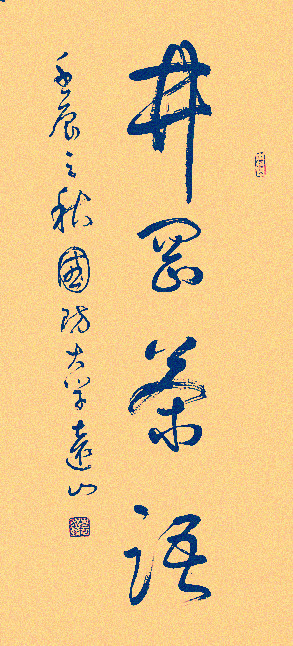 井冈茶语
壬辰之秋国防大学远山